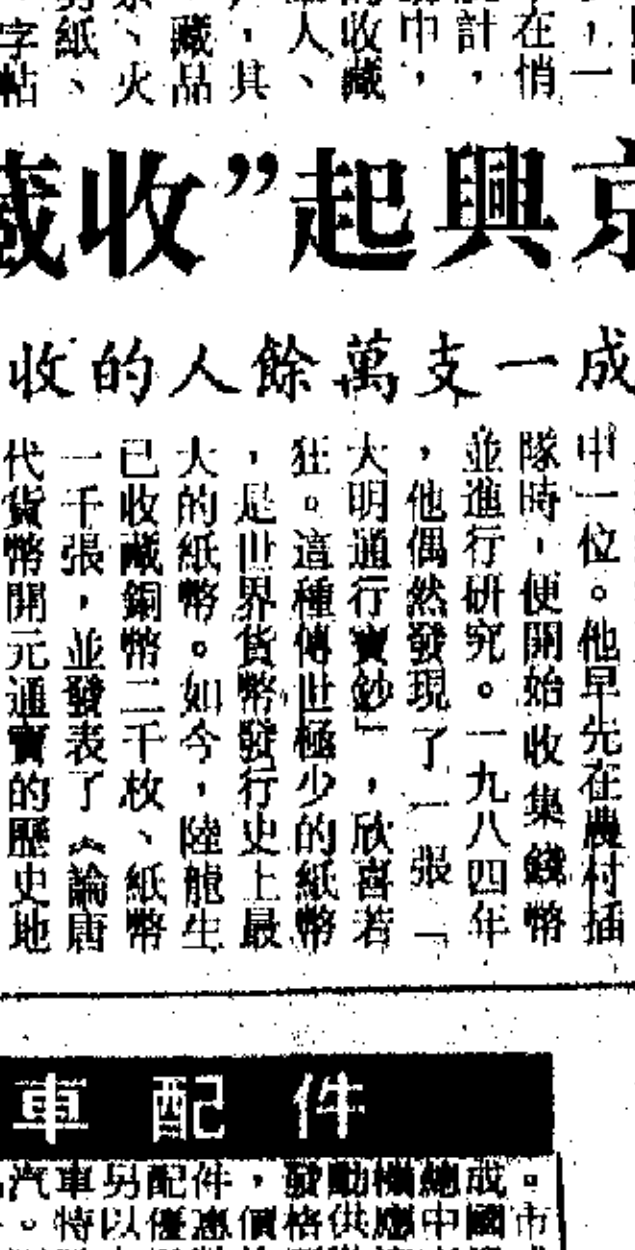 ，一
在悄
計，
中，
收藏
人、
，其
藏品
、火
紙、
字帖
京興起”收藏
成一支萬餘人的收
中一位。他早先在農村插
隊時，便開始收集錢幣
並進行研究。一九八四年
，他偶然發現了一張「
大明通行寶鈔」，欣喜若
狂。這種傳世極少的紙幣
，是世界貨幣發行史上最
大的紙幣。如今，陸龍生
已收藏銅幣二千枚、紙幣
一千張，並發表了《論唐
代貨幣開元通寶的歷史地
車配件
汽車另配件，發動機總成。
。特以優惠價格供應中國市